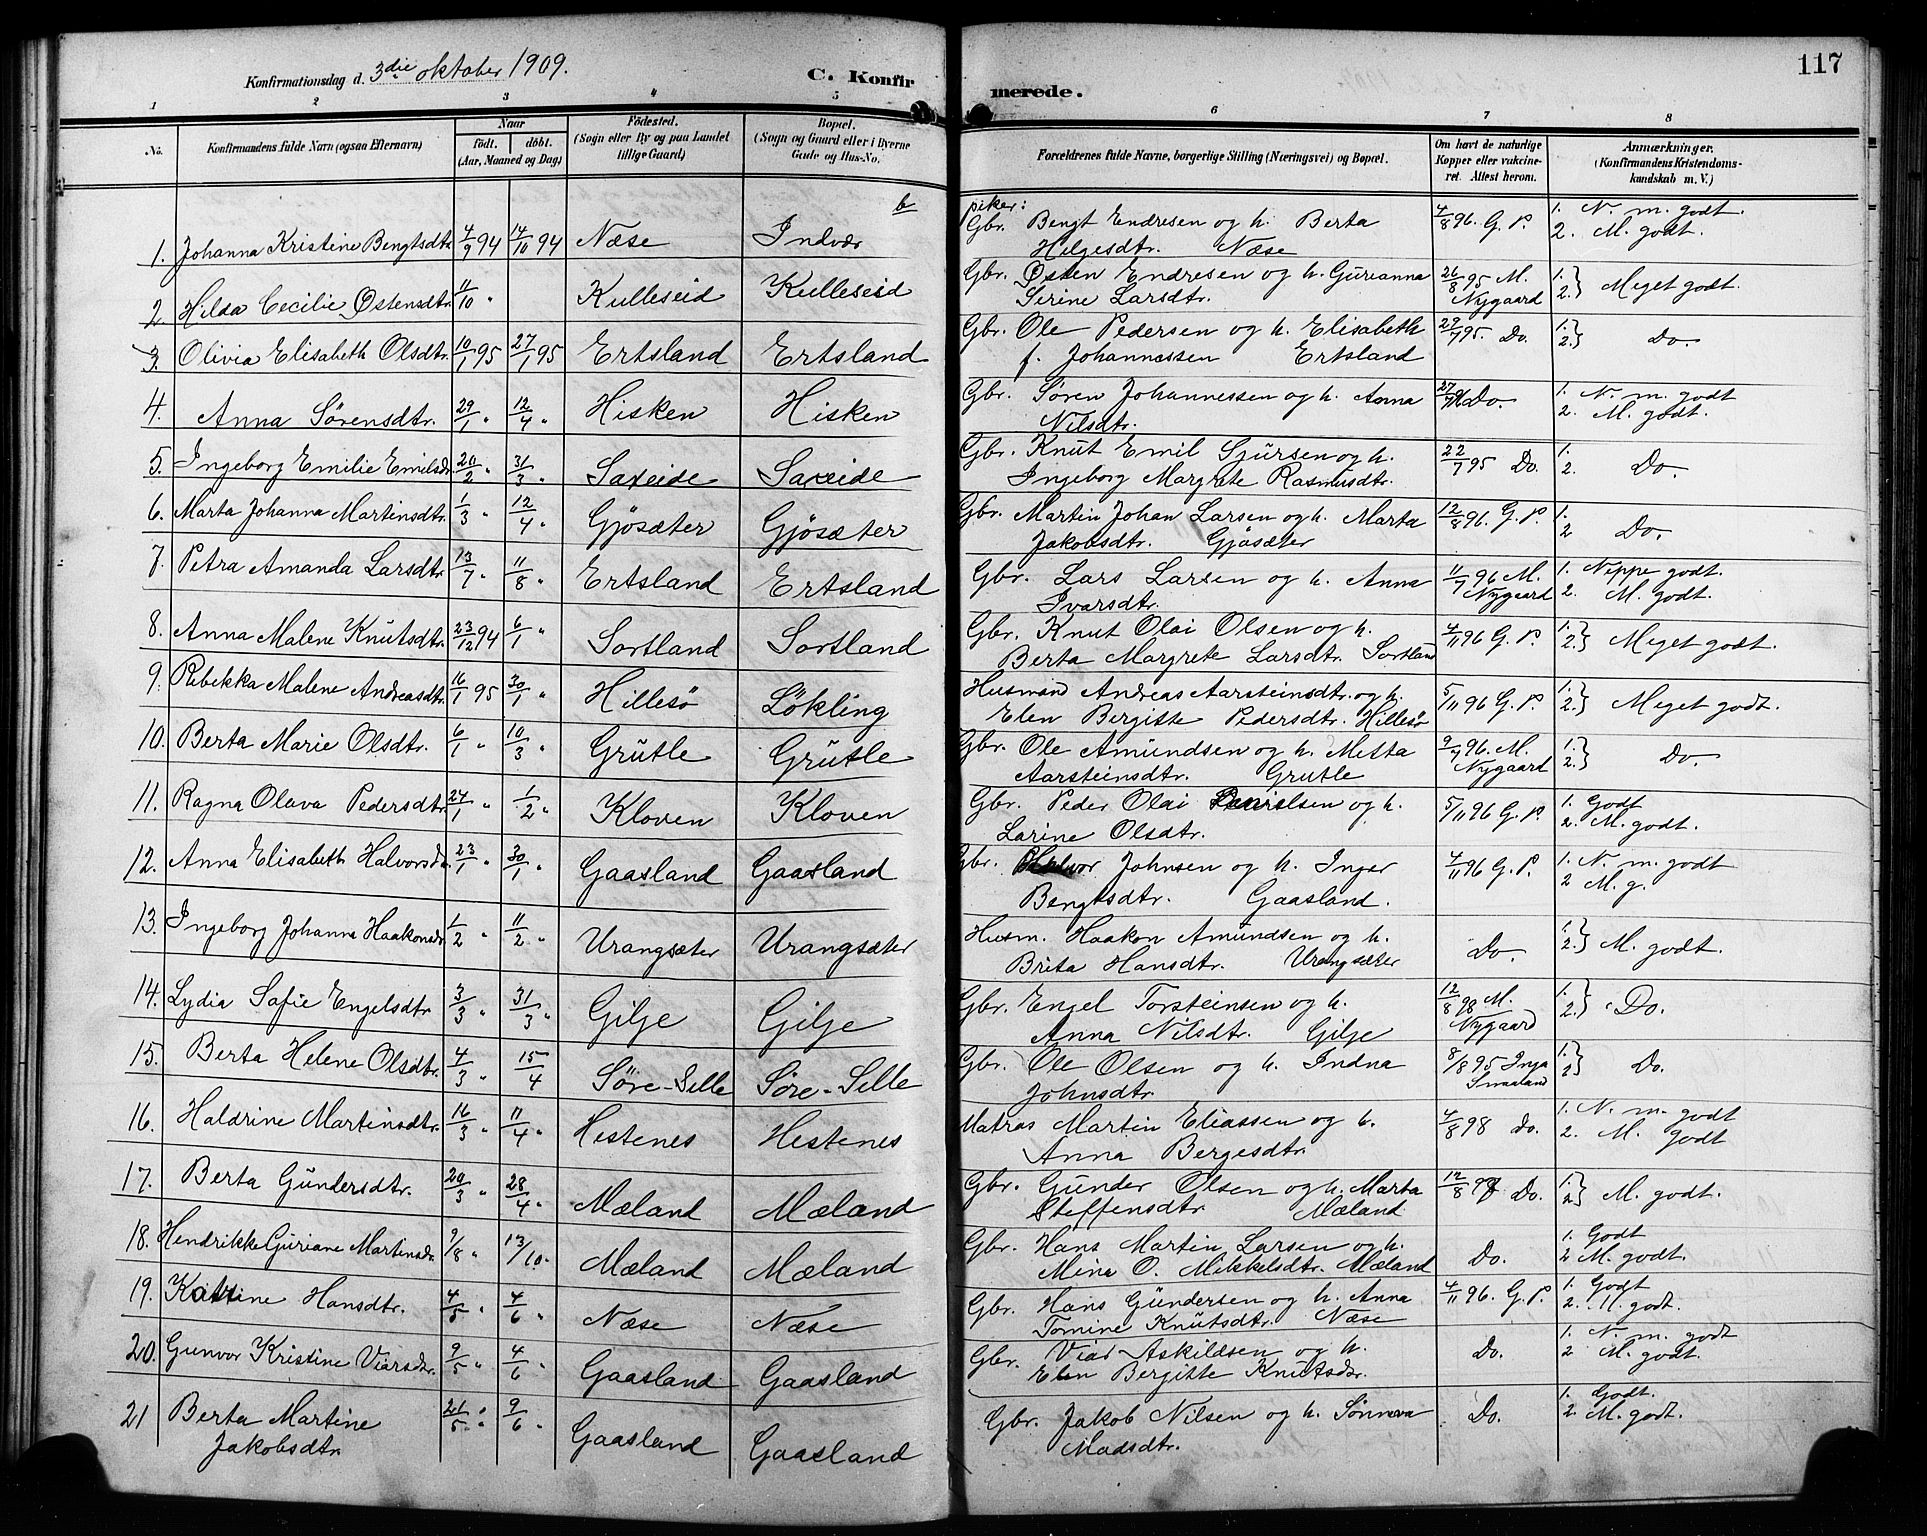 117
Konfirmationsdag d. 3die oktober 1909.
C. Konfirmerede.
1 2 3 4 5 6 7 8
No.
Konfirmandens fulde Navn (ogsaa Efternavn)
Naar
født. døbt.
(Aar, Maaned og Dag)
Fødested.
(Sogn eller By og paa Landet
tillige Gaard)
Bopæl.
(Sogn og Gaard eller i Byerne
Gade og Hus-No.
Forældrenes fulde Navne, borgerlige Stilling (Næringsvei) og Bopæl.
Om havt de naturlige
Kopper eller vakcine-
ret. Attest herom.
Anmærkninger.
(Konfirmandens Kristendoms-
kundskab m. V.)
b piker:
1. Johanna Kristine Bengtsdtr. 4/9 94 14/10 94 Næse Indvær Gbr. Bengt Endresen og h. Berta 4/8 96. G. P. 1. N. m. godt.
Helgesdtr. Næse 2. M. godt.
2. Hilda Cecilie Østensdtr. 11/10 " Kulleseid Kulleseid Gbr. Østen Endresen og h. Gurianna 26/8 95 M. 1. 2.} Meget godt.
Serine Larsdtr. Nygaard
3. Olivia Elisabeth Olsdtr. 10/1 95 27/1 95 Ertsland Ertsland Gbr. Ole Pedersen og h. Elisabeth 29/7 95. Do. 1. 2.} Do.
f. Johannessen Ertsland
4. Anna Sørensdtr. 29/1 " 12/4 " Hisken Hisken Gbr. Søren Johannessen og h. Anna 27/7 Do. 1. N. m. godt
Nilsdtr. 2. M. godt.
5. Ingeborg Emilie Emilsdr. 20/2 " 31/3 " Saxeide Saxeide Gbr. Knut Emil Sjursen og h. 22/7 95 Do. 1. 2. Do.
Ingeborg Margrete Rasmusdtr.
6. Marta Johanna Martinsdtr. 1/3 " 12/4 " Gjøsæter Gjøsæter Gbr. Martin Johan Larsen og h. Marta 12/8 96. G. P. 1. 2 Do.
Jakobsdtr. Gjøsæter
7. Petra Amanda Larsdtr. 13/7 " 11/8 " Ertsland Ertsland Gbr. Lars Larsen og h. Anna 11/7 96 M. 1. Neppe godt.
Ivarsdtr. Nygaard 2. M. godt.
8. Anna Malene Knutsdtr. 23/12 94 6/1 " Sortland Sortland Gbr. Knut Olai Olsen og h. 4/11 96 G. P. 1. 2.} Meget godt.
Berta Margrete Larsdtr. Sortland
9. Rebekka Malene Andreasdtr. 16/1 95 30/1 " Hillesø Løkling Husmand Andreas Aarsteinsdtr. og h. 5/11 96 G. P. 1. 2.} Meget godt.
Elen Bergitte Pedersdtr. Hillesø
10. Berta Marie Olsdtr. 6/1 " 10/3 " Grutle Grutle Gbr. Ole Amundsen og h. Metta 9/7 96. M. 1. 2.} Do.
Aarsteinsdtr. Grutle Nygaard
11. Ragna Olava Pedersdtr. 24/1 " 1/2 " Kloven Kloven Gbr. Peder Olai Danielsen og h. 5/11 96 G. P. 1. Godt
Larine Olsdtr. 2. M. godt.
12. Anna Elisabeth Halvorsdr. 23/1 " 30/1 " Gaasland Gaasland Gbr. Halvor Johnsen og h. Inger 4/11 96 G. P. 1. N. m. godt
Bengtsdtr. Gaasland. 2 M. g.
13. Ingeborg Johanna Haakonsdr. 1/2 " 11/2 " Urangsæter Urangsæter Husm. Haakon Amundsen og h. Do. 1. 2.} M. godt.
Brita Hansdtr. Urangsæter
14. Lydia Safie Engelsdtr. 3/3 " 31/3 " Gilje Gilje Gbr. Engel Torsteinsen og h. 12/8 98 M. 1. 2.} Do.
Anna Nilsdtr. Gilje Nygaard
15. Berta Helene Olsdtr. 4/3 " 15/4 Søre-Selle Søre-Selle Gbr. Ole Olsen og h. Indna 8/8 95 Inga 1. 2} Do.
Johnsdtr. Smaaland
16. Haldrine Martinsdtr. 16/3 " 11/4 " Hestenes Hestenes Matros Martin Eliassen og h. 4/8 98 Do. 1. N. m. godt
Anna Bergesdtr. 2. M. godt
17. Berta Gundersdtr. 20/3 " 28/4 " Mæland Mæland Gbr. Gunder Olsen og h. Marta 12/8 Do. 1. 2} M. godt.
Steffensdtr Mæland
18. Hendrikke Guriane Martinsdr. 9/8 " 13/10 " Mæland Mæland Gbr. Hans Martin Larsen og h. Do. 1. Godt
Mina O. Mikkelsdtr. Mæland 2 M. godt.
19. Katrine Hansdtr. 4/5 " 4/6 " Næse Næse Gbr. Hans Gundersen og h. Anna 4/11 96. G. P. 1. Godt
Tomine Knutsdtr. Næse 2. M. godt.
20. Gunvor Kristine Viarsdr. 9/5 " 4/6 " Gaasland Gaasland Gbr. Viar Askildsen og h. Do. 1. N. m. godt
Elen Bergitte Knutsdr. 2 M. godt.
21 Berta Martine 21/5 " 9/6 " Gaasland Gaasland Gbr. Jakob Nilsen og h. Sønneva Do. 1. Godt.
Jakobsdtr. Madsdtr. 2 M. godt.